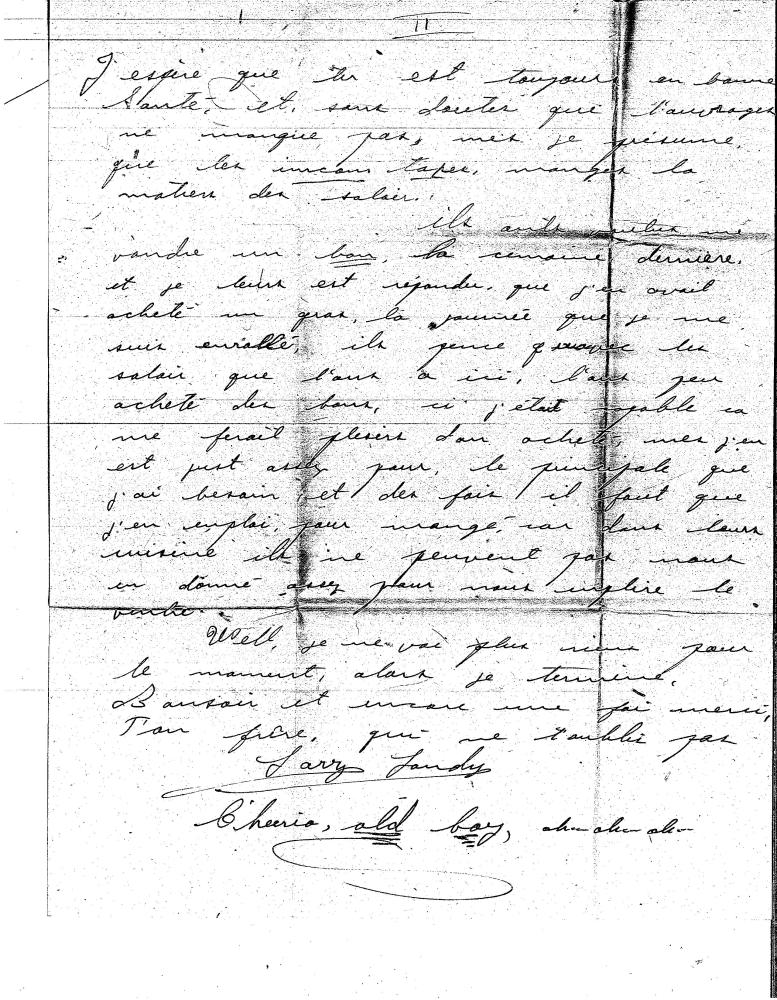 II
J'espère que tu est toujours en bonne
Santé, et, sans doutes que l'auvrages
ne manque pas, mes je présume,
que les imcom tapes, manges la
matiers des salair.
ils onts voulus me
vandre un bon, la cemaine dernière,
et je leurs est répondu, que j'en avait
acheté un gros, la journée que je me
suis enrollé, ils pence qu'avec les
salair que l'ont a ici, l'ont peu
acheté des bons, ci j'était capable ca
me ferait plesirs d'an acheté, mes j'en
est just assez pour, le principale que
j'ai besoin, et des fois il faut que
j'en emploi, pour mangé, car dans leurs
cuisine ils ne peuvent pas nous
en donné assez pour nous emplire le
ventre.
Well, je ne voi plus riens pour
le moment, alors je termine.
Bonsoir et encore une foi merci,
Ton frère, qui ne t'oublie pas
Larry Landry
Cheerio, old boy, ah-ah-ah-